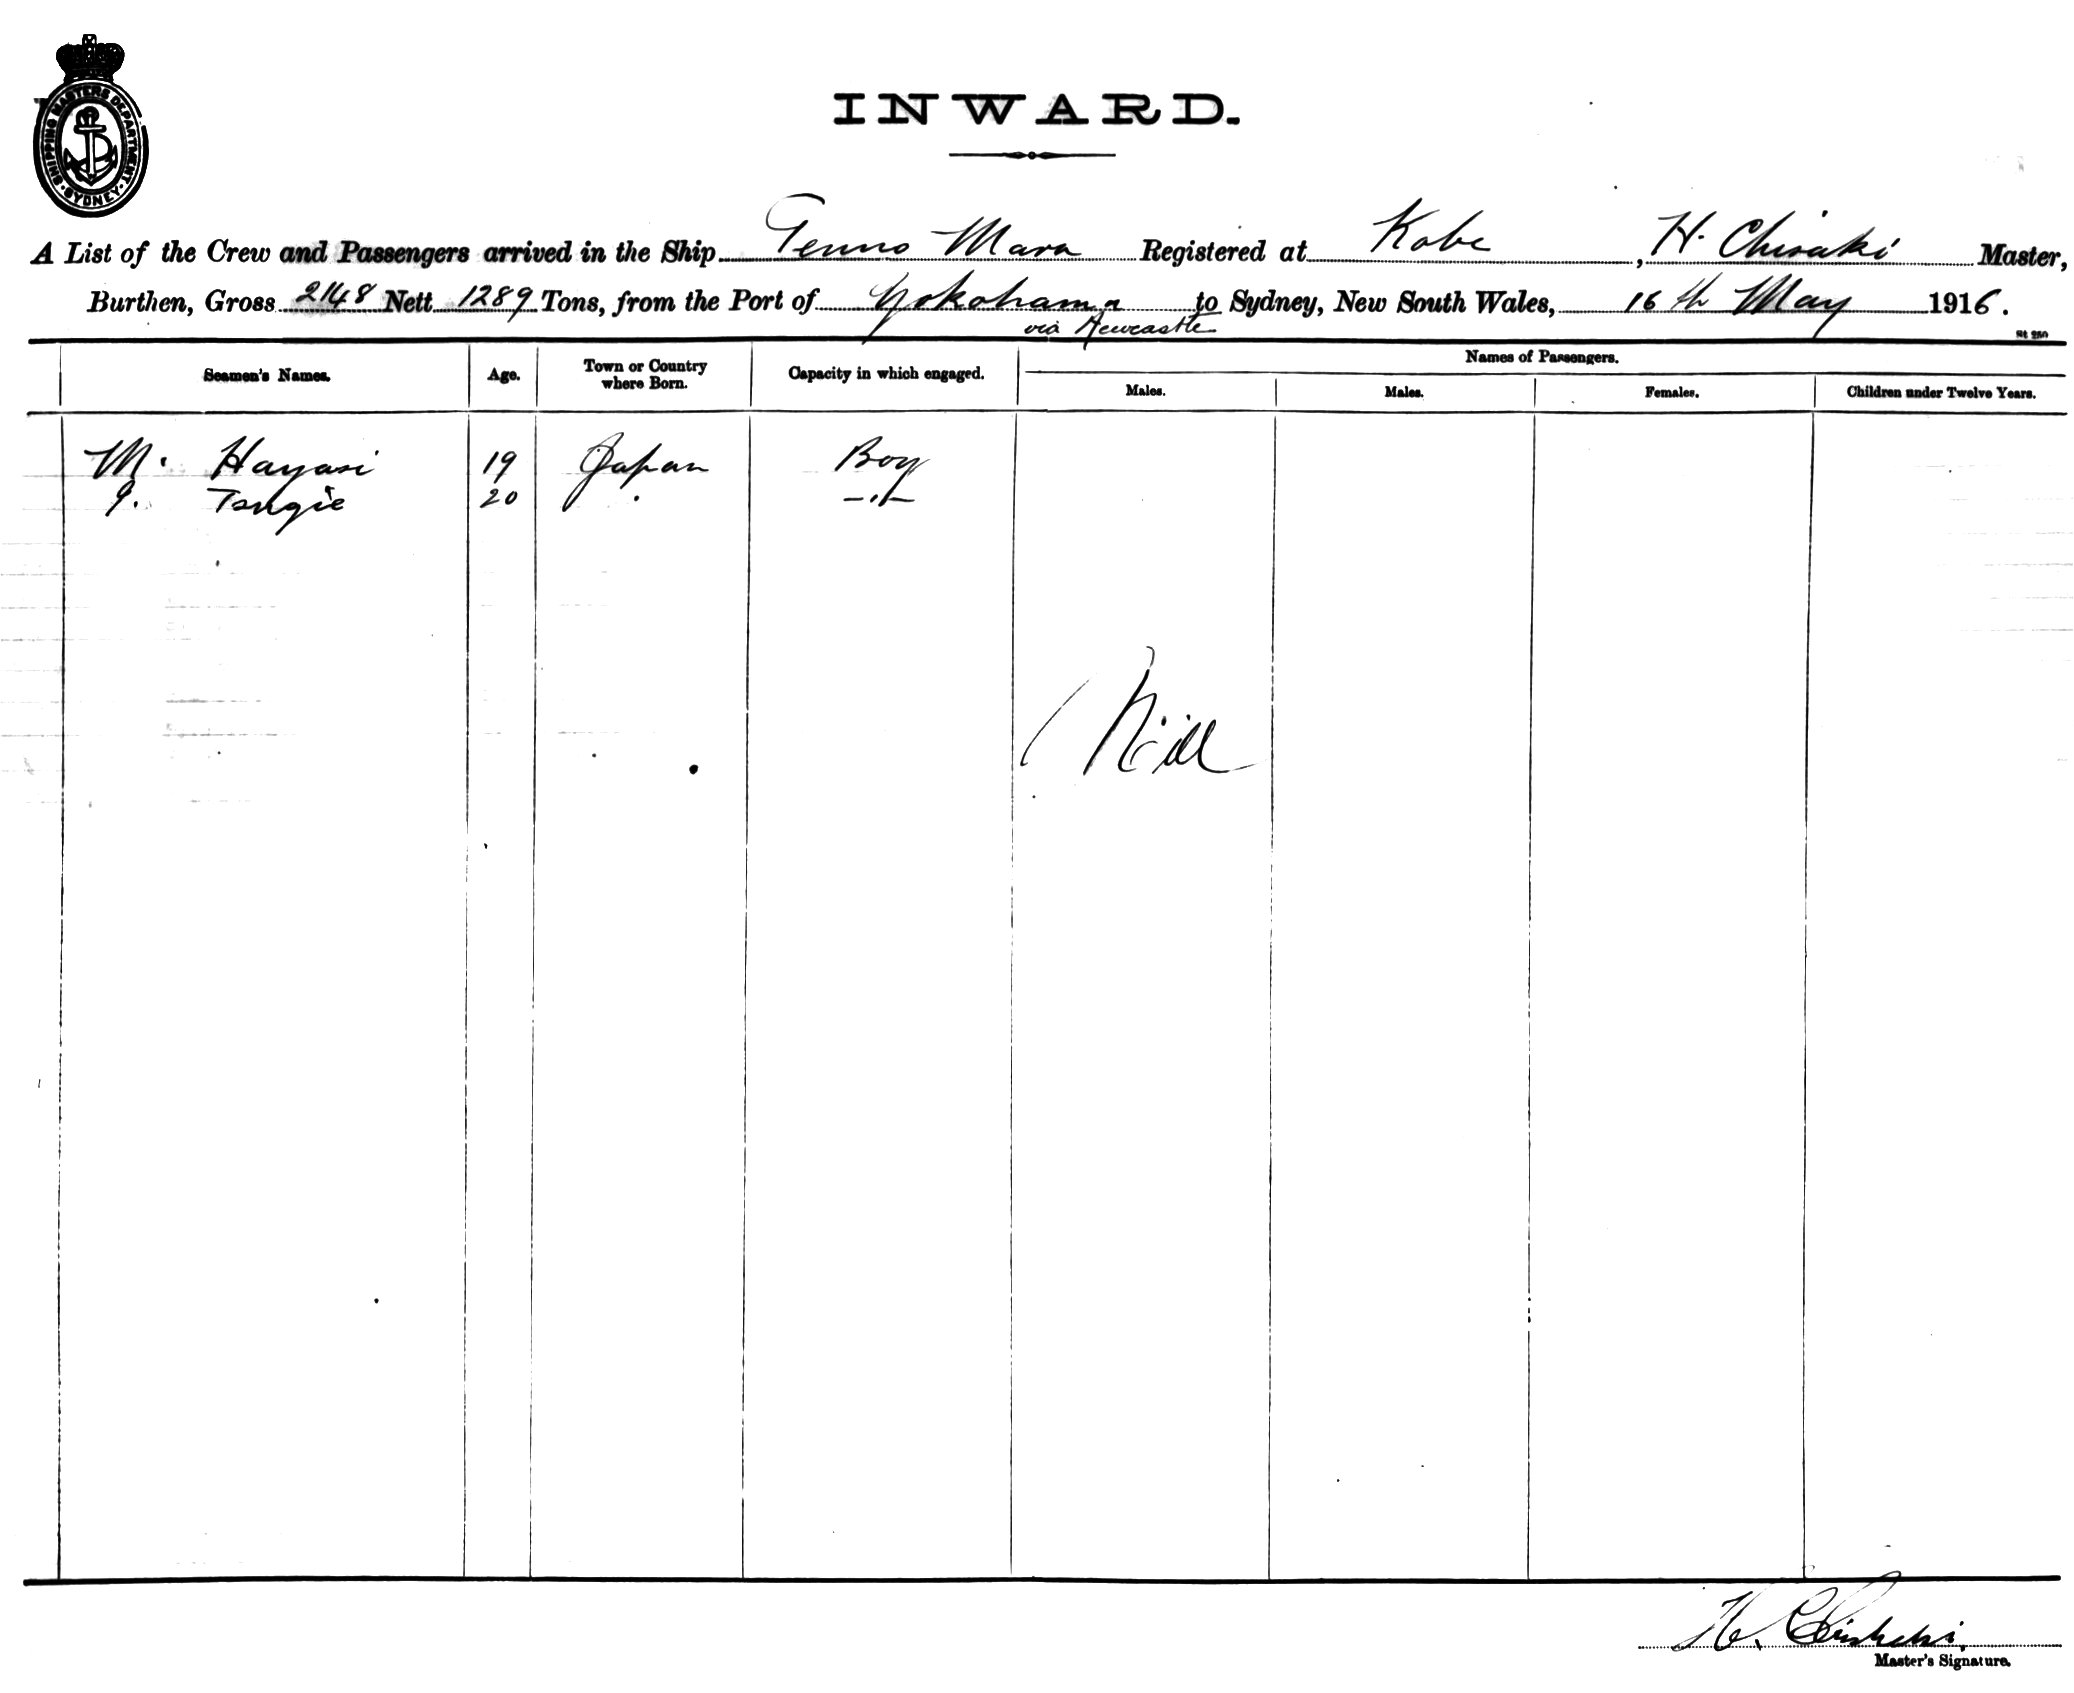 SHIPPING MASTERS DEPARTMENT · SYDNEY ·
INWARD.
A List of the Crew and Passengers arrived in the Ship Tenno Mara Registered at Kobe, H. Chisaki Master,
Burthen, Gross 2148 Nett 1289 Tons, from the Port of Yokohama to Sydney, New South Wales, 16th May 1916.
via Newcastle
St 280
Seamen's Names. Age. Town or Country where Born. Capacity in which engaged. Names of Passengers.
Males. Males. Females. Children under Twelve Years.
M. Hayasi 19 Japan Boy
Tsugie 20 " -"-
Master's Signature.